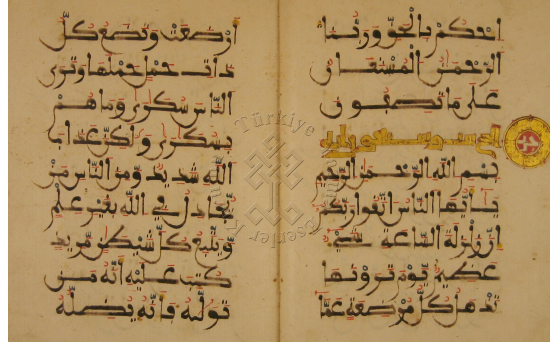 احكم بالحق وربنا
الرحمن المستعان
على ما تصفون
بسم الله الرحمن الرحيم
يأيها الناس اتقوا ربكم
إن زلزلة الساعة شيء
عظيم يوم ترونها
تذهل كل مرضعة عما
أرضعت وتضع كل
ذات حمل حملها وترى
الناس سكرى وما هم
بسكرى ولكن عذاب
الله شديد ومن الناس من
يجادل في الله بغير علم
ويتبع كل شيطن مريد
كتب عليه أنه من
تولاه فأنه يضله
Türkiye